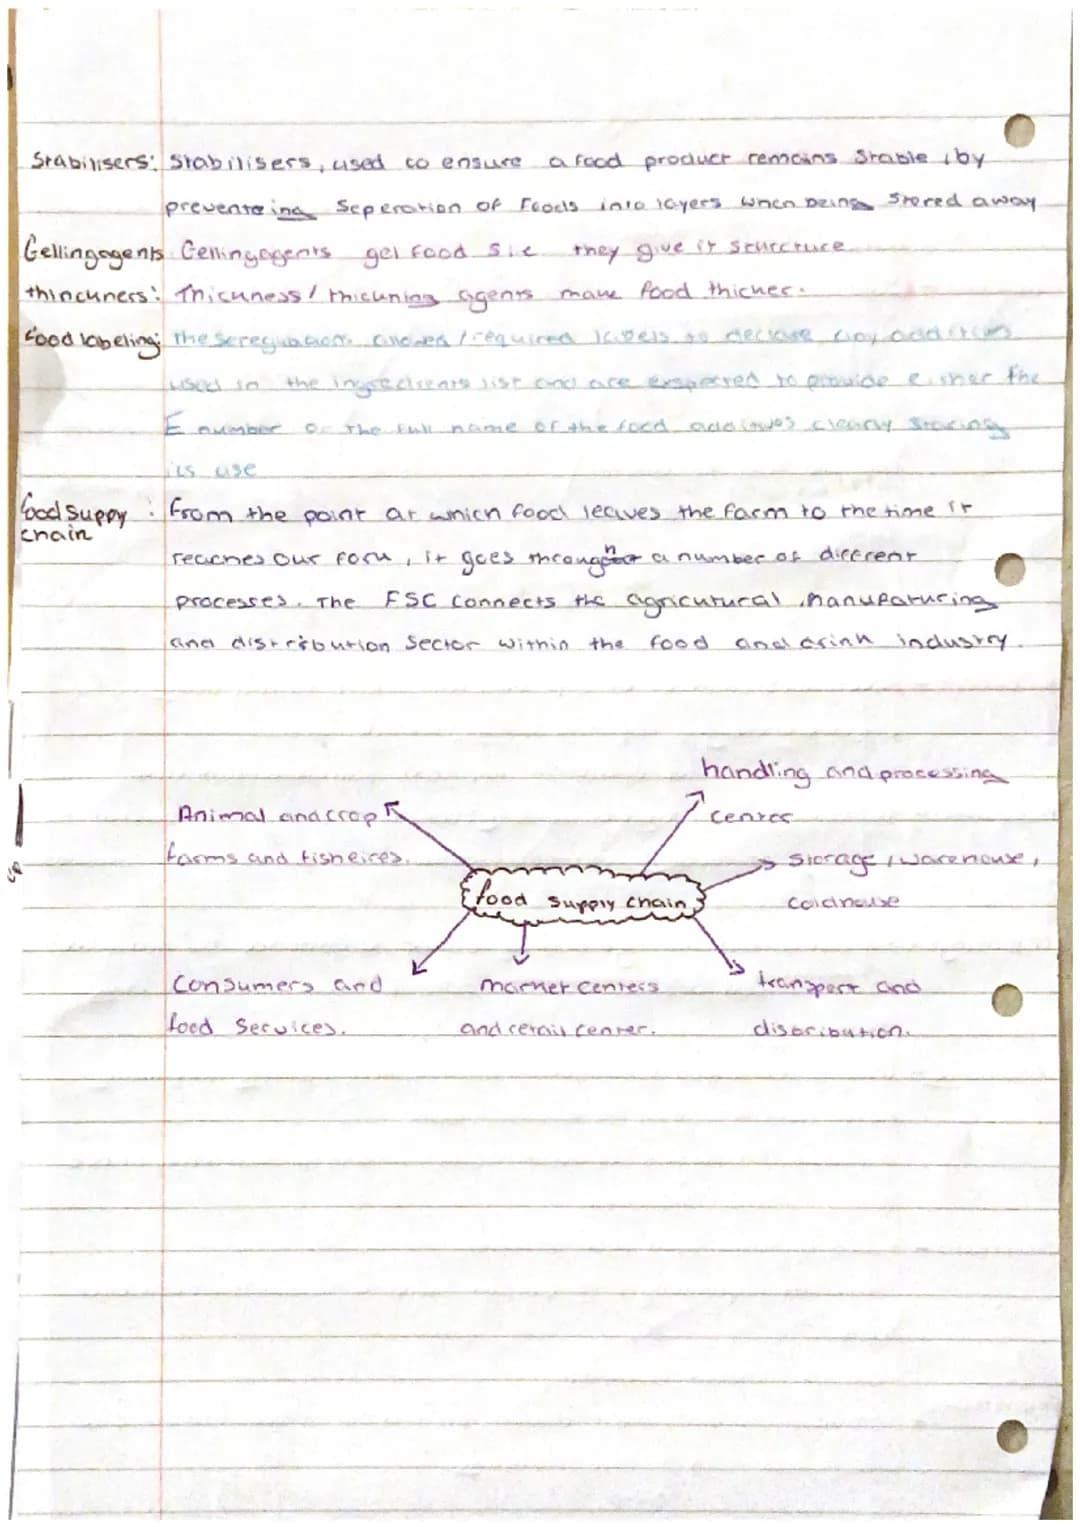 Stabilisers: Stabilisers, used to ensure a food product remains stable, by
preventing Seperation of foods into layers when being Stored away
Gellingagents Gellingagents gel food S.i.e they give it structure
thinckners: Thickness / thickning agents make food thicker.
food labeling: these required labels to declare any additives
used in the ingredients list and are expected to provide either the
E number or the full name of the food additives clearly stating
its use
food Suppy chain : From the point at which food leaves the farm to the time it
reaches our fork, it goes through a number of different
processes. The FSC connects the agricutural, manufaturing
and distribution Sector within the food and drink industry.
handling and processing
center
Animal and crop
farms and fisheires.
Storage, warehouse,
coldhouse
food supply chain
Consumers and
food Services.
market centers
and retail center.
transport and
distribution.